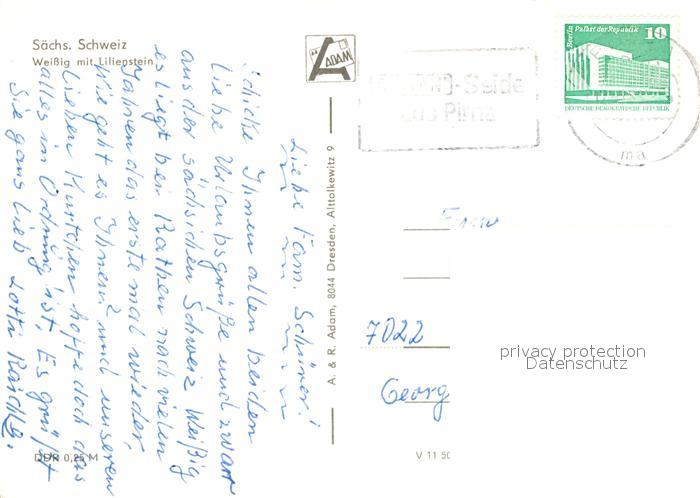 Sächs. Schweiz
Weißig mit Lilienstein
ADAM
Berlin, Palast der Republik 10
DEUTSCHE DEMOKRATISCHE REPUBLIK
-Seide
aus Pirna
Liebe Fam.
schicke Ihnen allen beiden
liebe Urlaubsgrüße und zwar
aus der sächsichen Schweiz Weißig
es liegt bei Rathen nach vielen
Jahren das erste mal wieder,
Wie geht es Ihnen? und unseren
lieben Kurtchen hoffe doch das
alles in Ordnung ist. Es grüßt
Sie ganz lieb Lotti
A. & R. Adam, 8044 Dresden, Alttolkewitz 9
Fam
7022
Georg
privacy protection
Datenschutz
DDR 0,25 M
V 11 50